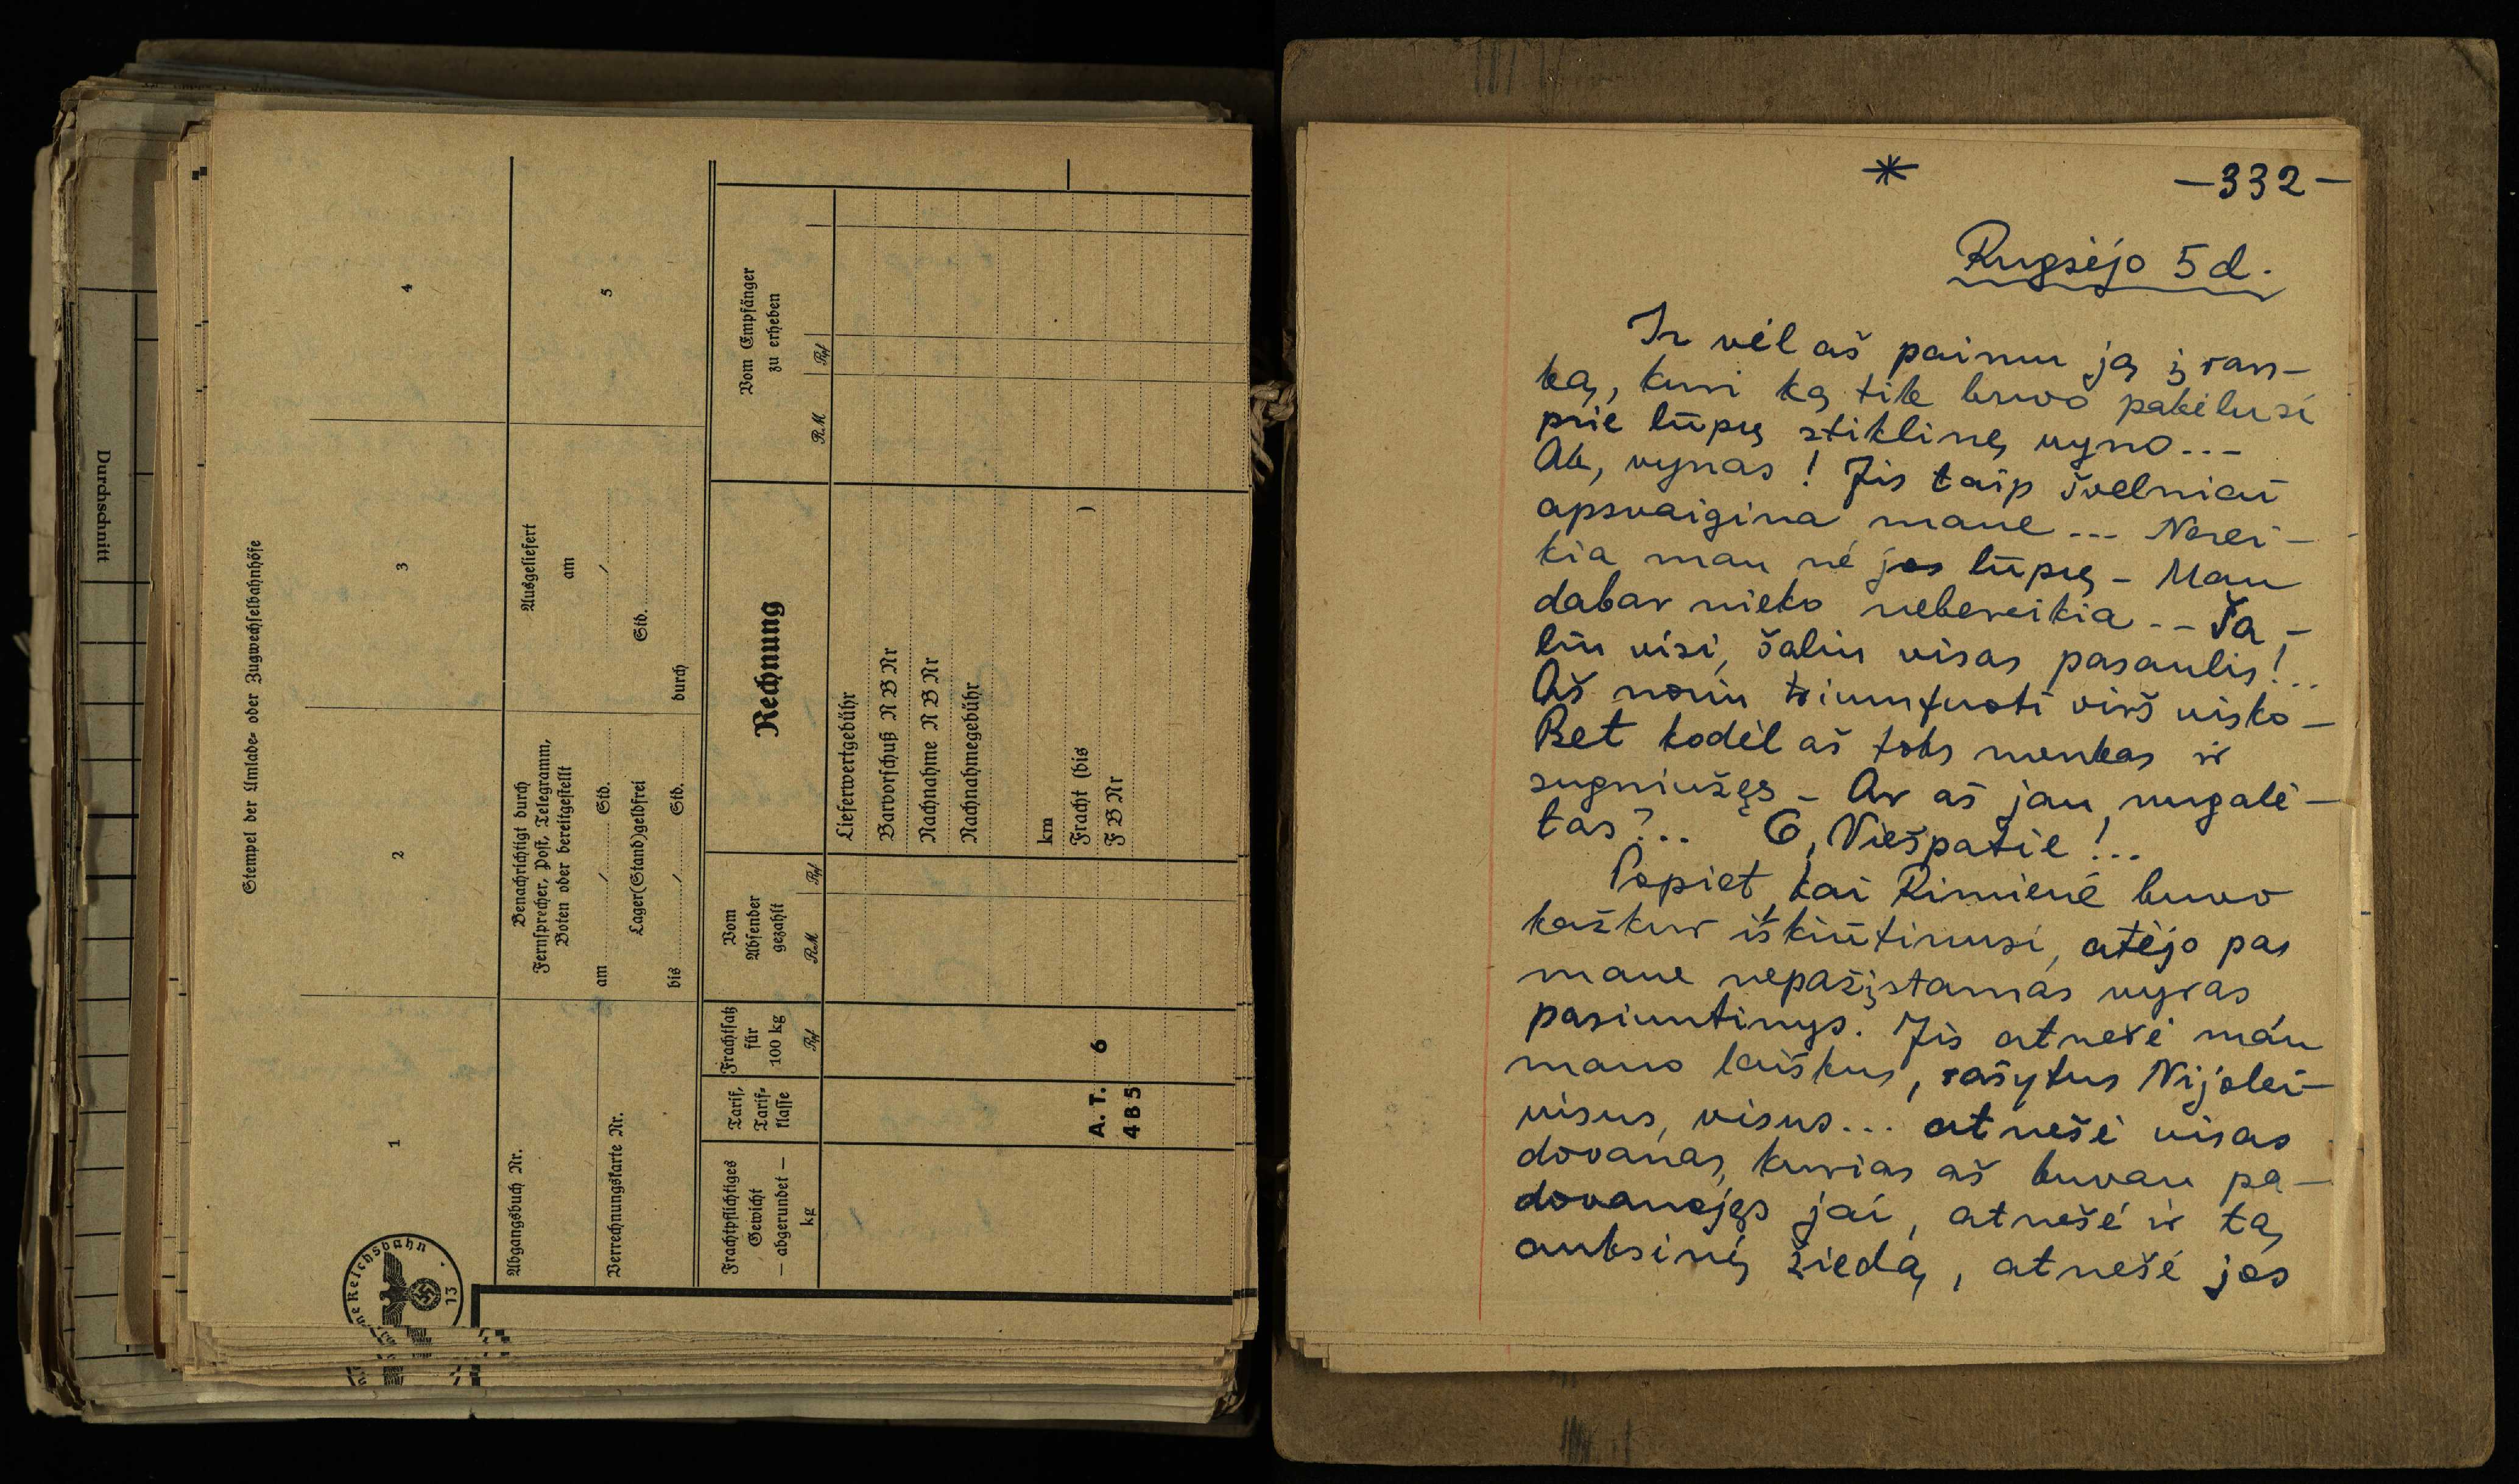 Durchschnitt
Stempel der Umlade- oder Zugwechselbahnhöfe
1
2
3
4
Abgangsbuch Nr.
Benachrichtigt durch
Fernsprecher, Post, Telegramm,
Boten oder bereitgestellt
Ausgeliefert
am
5
Verrechnungskarte Nr.
am / Std.
/
Lager(Stand)geldfrei
Std.
bis / Std.
durch
Frachtpflichtiges
Gewicht
— abgerundet —
kg
Tarif,
Tarif-
klasse
Frachtsatz
für
100 kg
Rpf
Vom
Absender
gezahlt
RM Rpf
Rechnung
Vom Empfänger
zu erheben
RM Rpf
Lieferwertgebühr
Barvorschuß N B Nr
Nachnahme N B Nr
Nachnahmegebühr
km
A. T. 6 Fracht (bis )
4 B 5 F B Nr
ne Reichsbahn
13
*
—332—
Rugsėjo 5 d.
Ir vėl aš paimu ją į ran-
ką, kuri ką tik buvo pakėlusi
prie lūpų stiklinę vyno...
Ak, vynas! Jis taip švelniai
apsvaigina mane... Nerei-
kia man nė jos lūpų - Man
dabar nieko nebereikia -- Ša-
lin visi, šalin visas pasaulis!..
Aš noriu triumfuoti virš visko -
Bet kodėl aš toks menkas ir
sugniužęs - Ar aš jau nugalė-
tas?.. O, Viešpatie!...
Popiet, kai Rimienė buvo
kažkur iškiūtinusi, atėjo pas
mane nepažįstamas vyras
pasiuntinys. Jis atnešė man
mano laiškus, rašytus Nijolei -
visus, visus... atnešė visas
dovanas, kurias aš buvau pa-
dovanojęs jai, atnešė ir tą
auksinį žiedą, atnešė jos